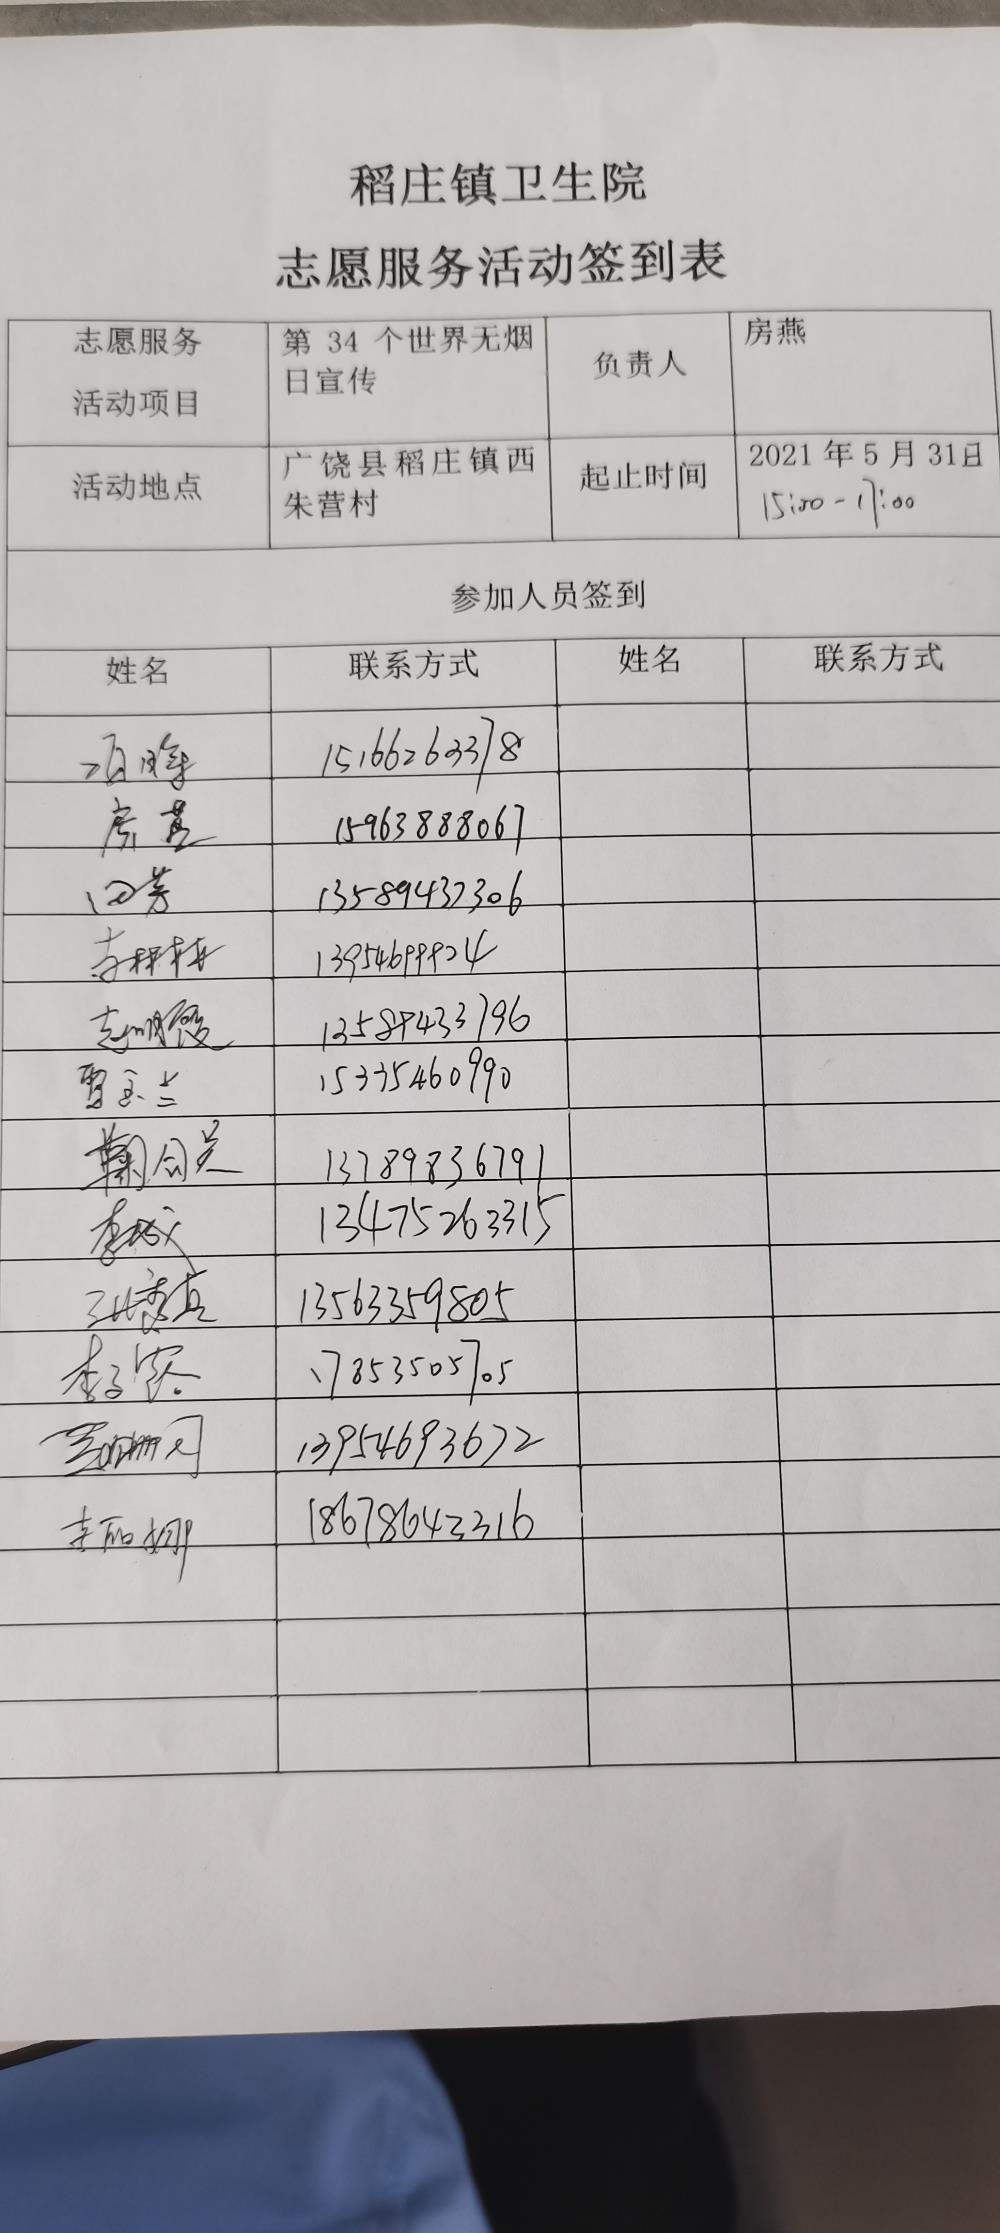 稻庄镇卫生院
志愿服务活动签到表
志愿服务
活动项目
第 34 个世界无烟
日宣传
负责人
房燕
活动地点
广饶县稻庄镇西
朱营村
起止时间
2021 年 5 月 31日
15:00-17:00
参加人员签到
姓名 联系方式 姓名 联系方式
15166263378
房燕 15963888067
田芳 13589437306
李梅梅
13589433796
贾玉兰 15335460990
13789836791
13475263315
13563359805
17853505705
13954693672
李丽娜 18678642316